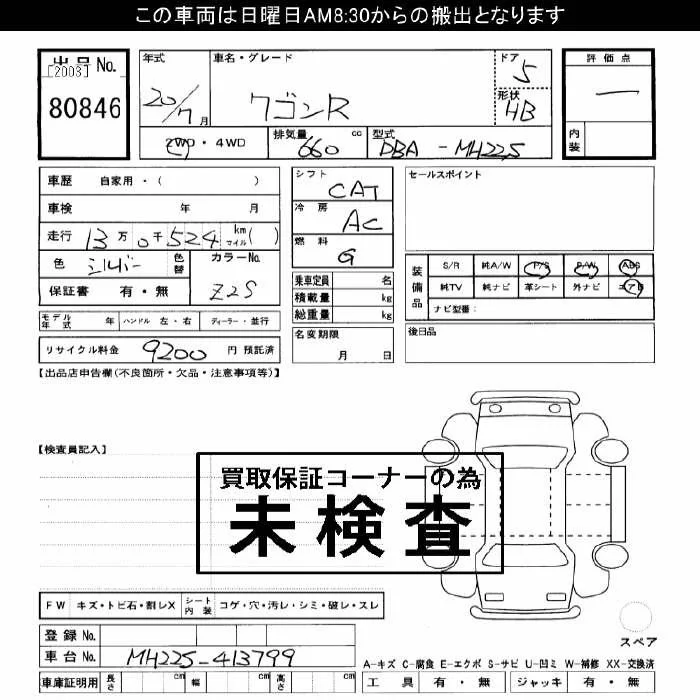 この車両は日曜日AM8:30からの搬出となります
出品No.
[2003]
80846
年式
20/7月
車名・グレード
ワゴンR
ドア
5
形状
HB
評価点
―
内装
2WD・4WD
排気量
660 cc
型式
DBA-MH22S
車歴 自家用・( )
車検 年 月
走行 13万0千524 km マイル( )
色 シルバー 色替
カラーNo.
Z2S
保証書 有・無
シフト
CAT
冷房
AC
燃料
G
セールスポイント
装備品
S/R 純A/W P/S P/W ABS
純TV 純ナビ 革シート 外ナビ エアB
ナビ型番:
乗車定員 名
積載量 kg
総重量 kg
モデル年式 年 ハンドル 左・右 ディーラー・並行
名変期限
月 日
後日品
リサイクル料金 9200 円 預託済
【出品店申告欄(不良箇所・欠品・注意事項等)】
【検査員記入】
買取保証コーナーの為
未検査
FW キズ・トビ石・割レX シート内装 コゲ・穴・汚レ・シミ・破レ・スレ
登録No.
車台No. MH22S-413799
スペア
A-キズ C-腐食 E-エクボ S-サビ U-凹ミ W-補修 XX-交換済
車庫証明用 長さ cm 幅 cm 高さ cm
工具 有・無 ジャッキ 有・無